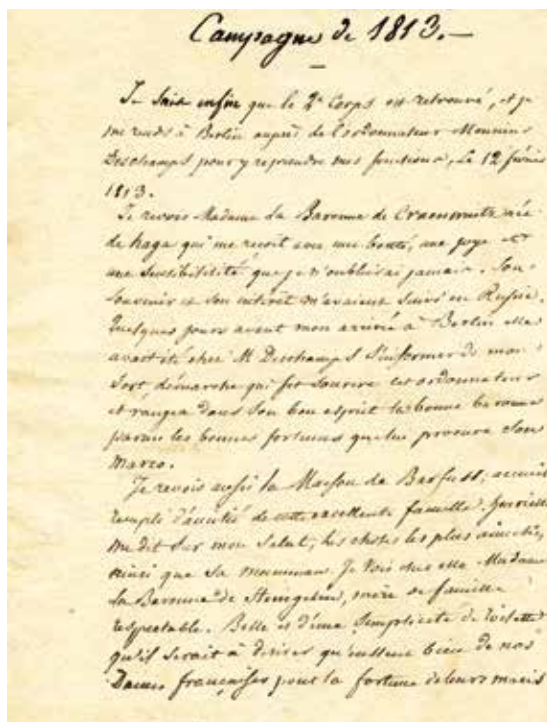 Campagne de 1813. —
Je sais enfin que le 2e Corps est retrouvé, et je
me rends à Berlin auprès de l'ordonnateur Monsieur
Deschamps pour y reprendre mes fonctions, le 12 février
1813.
Je revois Madame la Baronne de née
de haga qui me reçoit avec une bonté, une joye et
une sensibilité que je n'oublirai jamais. Son
souvenir et son intérêt m'avaient suivi en Russie.
Quelques jours avant mon arrivée à Berlin elle
avait été chez M Deschamps s'informer de mon
sort, démarche qui fit sourire cet ordonnateur
et rangea dans son bon esprit la bonne baronne
parmi les bonnes fortunes que lui procure son
Je revois aussi la Maison de Barfuss; accueil
rempli d'amitié de cette excellente famille. henriette
me dit sur mon salut, les choses les plus aimables,
ainsi que sa maman. Je vois chez elle Madame
la Baronne de mère de famille
respectable. Belle et d'une simplicité de toilette
qu'il serait à désirer qu'eussent bien de nos
Dames françaises pour la fortune de leurs maris